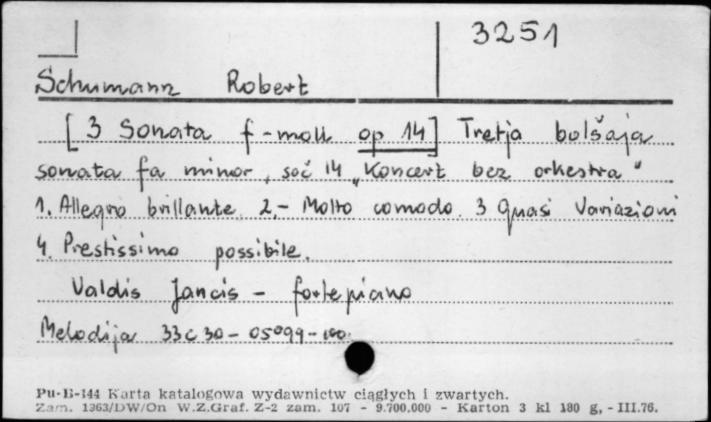 3251
Schumann Robert
[3 Sonata f-moll op 14] Tretja bolšaja
sonata fa minor, soč 14 „Koncert bez orkestra"
1. Allegro brillante. 2.- Molto comodo. 3 Quasi Variazioni
4. Prestissimo possibile.
Valdis Jancis - fortepiano
Melodija 33c 30-05099-100.
Pu-B-144 Karta katalogowa wydawnictw ciągłych i zwartych.
Zam. 1363/DW/On W.Z.Graf. Z-2 zam. 107 - 9.700.000 - Karton 3 kl 180 g, - III.76.